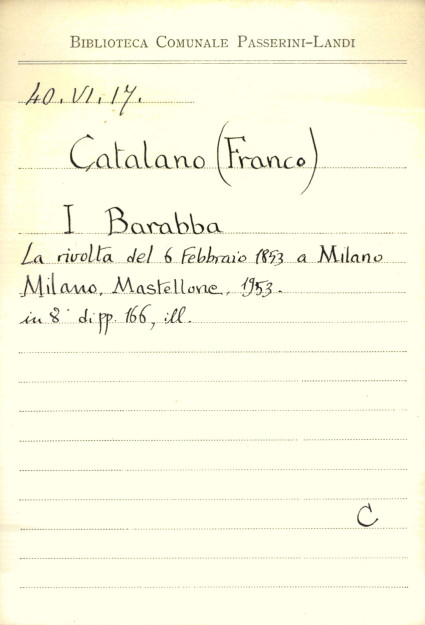 BIBLIOTECA COMUNALE PASSERINI-LANDI
40.VI.17.
Catalano (Franco)
I Barabba
La rivolta del 6 Febbraio 1853 a Milano
Milano, Mastellone, 1953.
in 8° di pp. 166, ill.
C